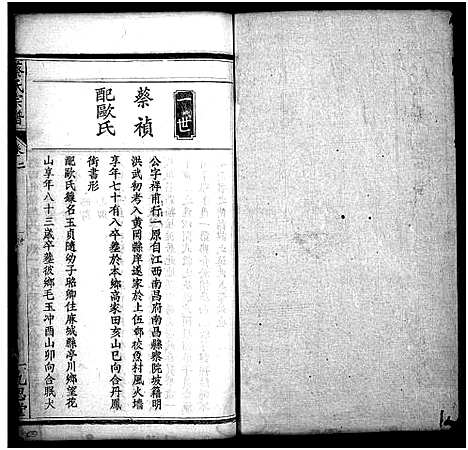 一世
蔡禎
配歐氏
公字祥甫行一原自江西南昌府南昌縣察院坡籍明
洪武初考入黃岡縣庠遂家於上伍鄉校魚村風火墻
享年七十有八卒塟於本鄉高家田亥山巳向合丹鳳
啣書形
配歐氏諱名玉貞隨幼子駱卿住麻城縣亭川鄉望花
山享年八十三歲卒塟彼鄉毛玉冲酉山卯向合眠犬
蔡氏宗譜